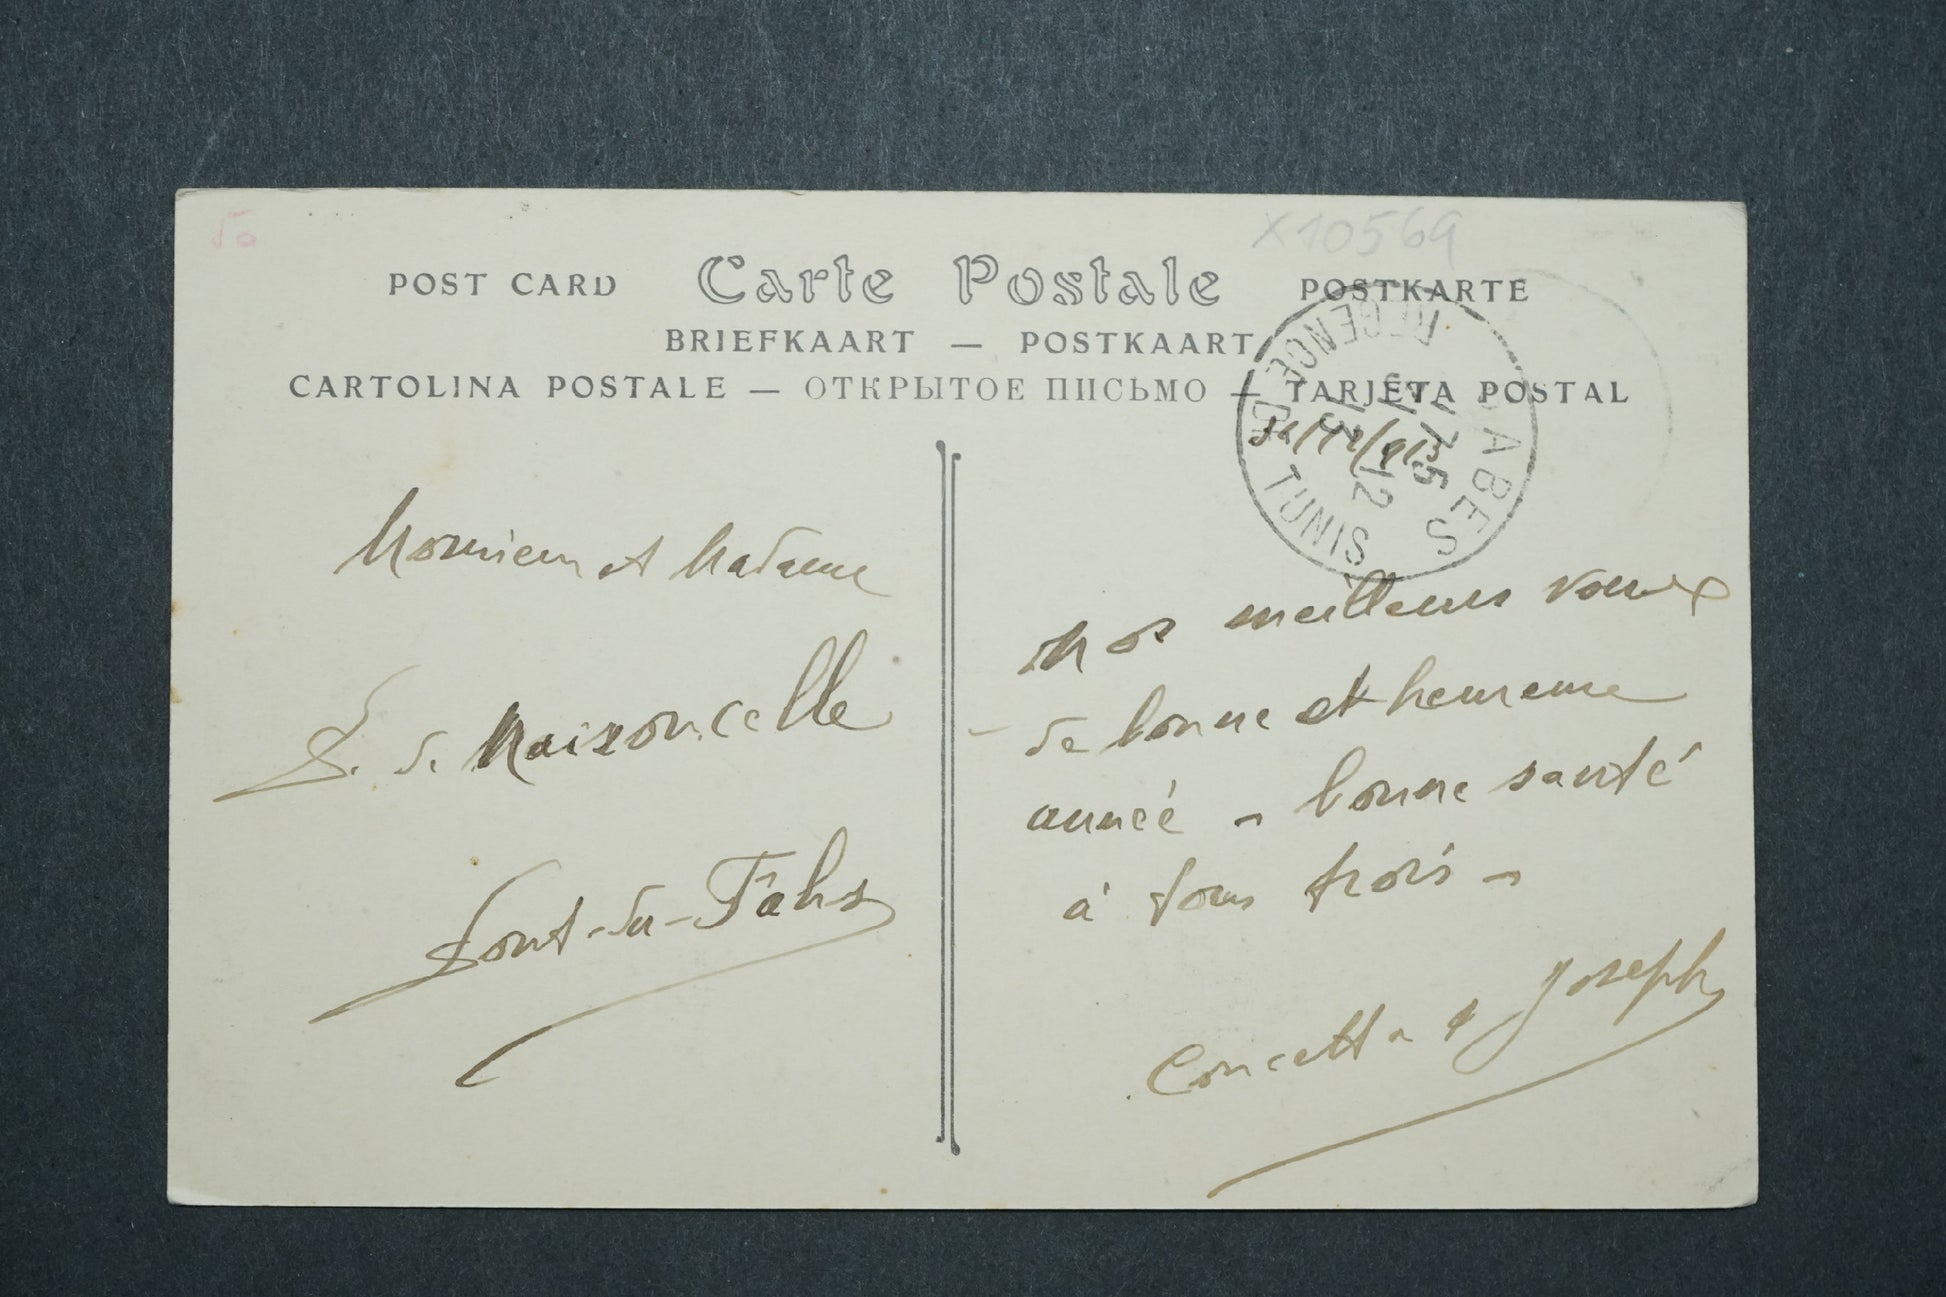 50
X10569
POST CARD Carte Postale POSTKARTE
BRIEFKAART — POSTKAART
CARTOLINA POSTALE — ОТКРЫТОЕ ПИСЬМО — TARJETA POSTAL
GABES
17 5
12
13
REGENCE DE TUNIS
Monsieur et Madame
S. de Maizoncelle
Pont-du-Fahs
/12/913
Nos meilleurs voeux
de bonne et heureuse
année - bonne santé
à tous trois -
Concetta & Joseph